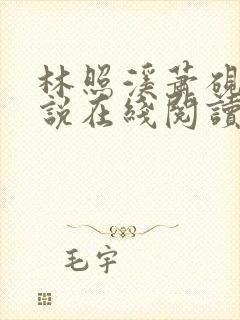 林照溪蕭硯
說在綫閱讀
毛宇